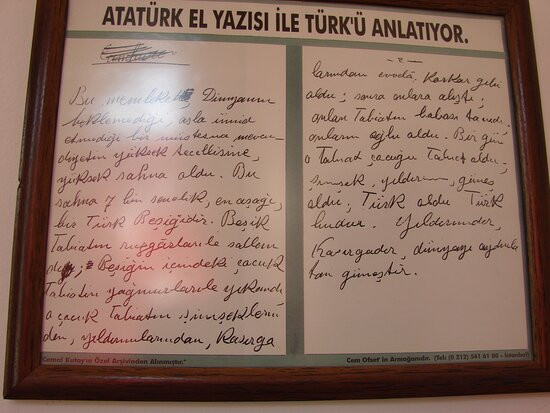 ATATÜRK EL YAZISI İLE TÜRK'Ü ANLATIYOR.
Bu memleket, Dünyanın
beklemediği, asla ümid
etmediği bir müstesna mevcu-
diyetin yüksek tecellisine,
yüksek sahna oldu. Bu
sahna 7 bin senelik, en aşağı,
bir Türk Beşiğidir. Beşik
Tabiatın rüzgârlarile sallan
dı; Beşiğin içindeki çocuk
Tabiatın yağmurlarile yıkandı,
o çocuk Tabiatın şimşeklerin
den, yıldırımlarından, Kasırga
"Cemal Kutay'ın Özel Arşivinden Alınmıştır."
- 2 -
larından evvelâ, korkar gibi
oldu; sonra onlara alıştı;
onları Tabiatın babası tanıdı,
onların oğlu oldu. Bir gün
o Tabiat çocuğu Tabiat oldu;
şimşek, yıldırım, güneş
oldu; Türk oldu. Türk
budur. Yıldırımdır,
Kasırgadır, dünyayı aydınla
tan güneştir.
Cem Ofset'in Armağanıdır. (Tel: (0 212) 541 61 80 - İstanbul)